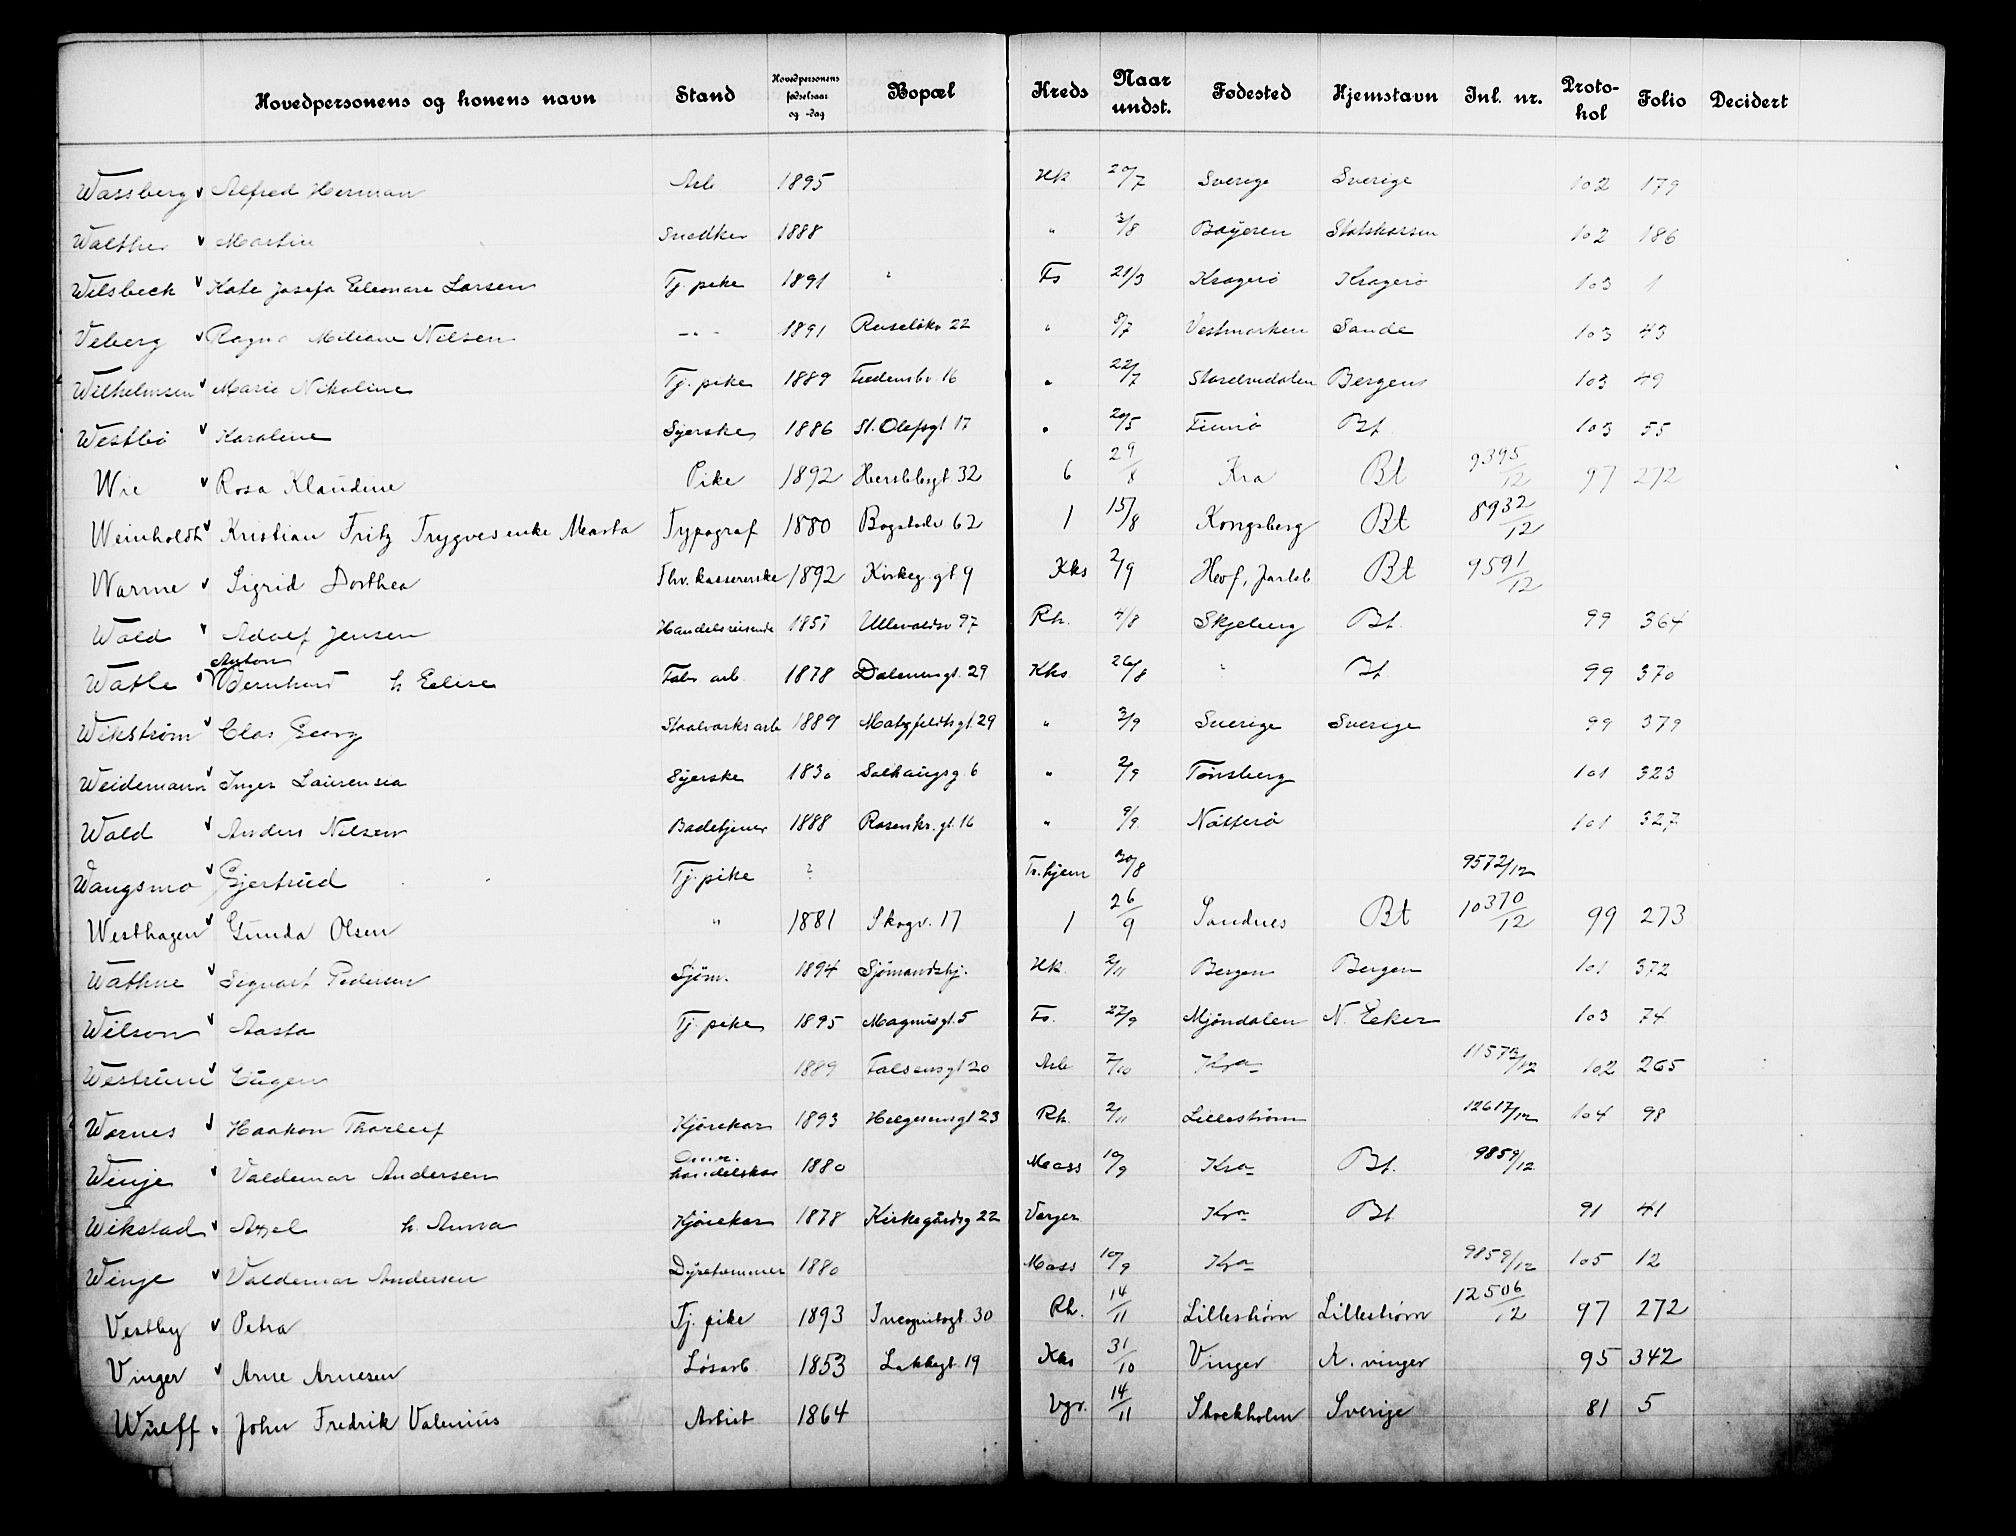 Hovedpersonens og konens navn Stand Hovedpersonens fødselsaar og -dag Bopæl Kreds Naar undst. Fødested Hjemstavn Inl. nr. Protokol Folio Decidert
Wassberg Alfred Herman Arb 1895 Hk 20/7 Sverige Sverige 102 179
Walther Martin Snedker 1888 " 3/8 Bayeren Statskassen 102 186
Wilsbeck Kate Josefa Eleonore Larsen Tj. pike 1891 " Fs 21/3 Kragerø Kragerø 103 1
Veberg Ragna Miliane Nilsen -"- 1891 Ruseløkv 22 " 8/7 Vestmarken Sande 103 43
Wilhelmsen Marie Nikoline Tj. pike 1889 Fredensbv. 16 " 22/7 Bergens 103 49
Westbø Karoline Syerske 1886 St. Olafsgt 17 " 20/5 Finnø Bt 103 55
Wie Rosa Klaudine Pike 1892 Herslebsgt 32 6 29/8 Kra Bt 9395/12 97 272
Weinholdt Kristian Fritz Trygves enke Marta Typograf 1880 Bogstadv 62 1 15/8 Kongsberg Bt 8932/12
Warme Sigrid Dorthea Fhv. kassererske 1892 Kirkeg gt 9 Kks 2/9 Hof, Jarlsb Bt 9591/12
Wold Adolf Jensen Handelsreisende 1857 Ullevoldsv 97 Rh. 4/8 Skjeberg Bt. 99 364
Anton
Watle Bernhard h Elise Fabr. arb. 1878 Dalennengt. 29 Kks 26/8 " Bt. 99 370
Wikstrøm Clas Georg Staalværksarb 1889 Matyfeldtsgt 29 " 3/9 Sverige Sverige 99 379
Weidemann Inger Laurensea Syerske 1830 Solhaugsg. 6 " 2/9 Tønsberg 101 323
Wold Anders Nilsen Badetjener 1888 Rosenkr. gt. 16 " 9/9 Nøtterø 101 327
Wangsmo Gjertrud Tj. pike ? Fs. hjem 30/8 9572/12
Westhagen Gunda Olsen " 1881 Skogv. 17 1 26/9 Sandnes Bt 10370/12 99 273
Wathne Sigvart Pedersen Sjøm. 1894 Sjømandshj. Hk. 2/11 Bergen Bergen 101 372
Wilson Aasta Tj. pike 1895 Magnusgt. 5 Fs. 27/9 Mjøndalen N. Eeker 103 74
Westrum Eugen 1889 Falsensgt 20 Arb 7/10 Kra 11573/12 102 265
Wornes Haakon Thorleif Kjørekar 1893 Helgesensgt 23 Rh. 2/11 Lillestrøm 12617/12 104 98
Winje Valdemar Andersen Omr. handelskar 1880 Moss 10/9 Kra Bt. 9859/12
Wikstad Axel h. Anna Kjørekar 1878 Kirkegårdsg 22 Varger Kra Bt 91 41
Winje Valdemar Andersen Dyretemmer 1880 Moss 10/9 Kra 9859/12 105 12
Vestby Petra Tj. pike 1893 Incognitogt. 30 Rh. 14/11 Lillestrøm Lillestrøm 12506/12 97 272
Vinger Arne Arnesen Løsarb. 1853 Lakkegt. 19 Kks 31/10 Vinger K. vinger 95 342
Wulff John Fredrik Valenius Artist 1864 Vgv. 14/11 Stockholm Sverige 81 5